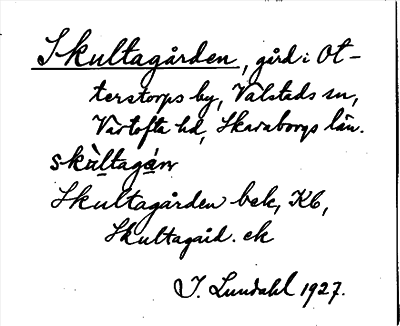 Skultagården, gård i Ot-
terstorps by, Valstads sn,
Vartofta hd, Skaraborgs län.
skùltagán
Skultagården bek, Kb,
Skultagård. ek
I. Lundahl 1927.